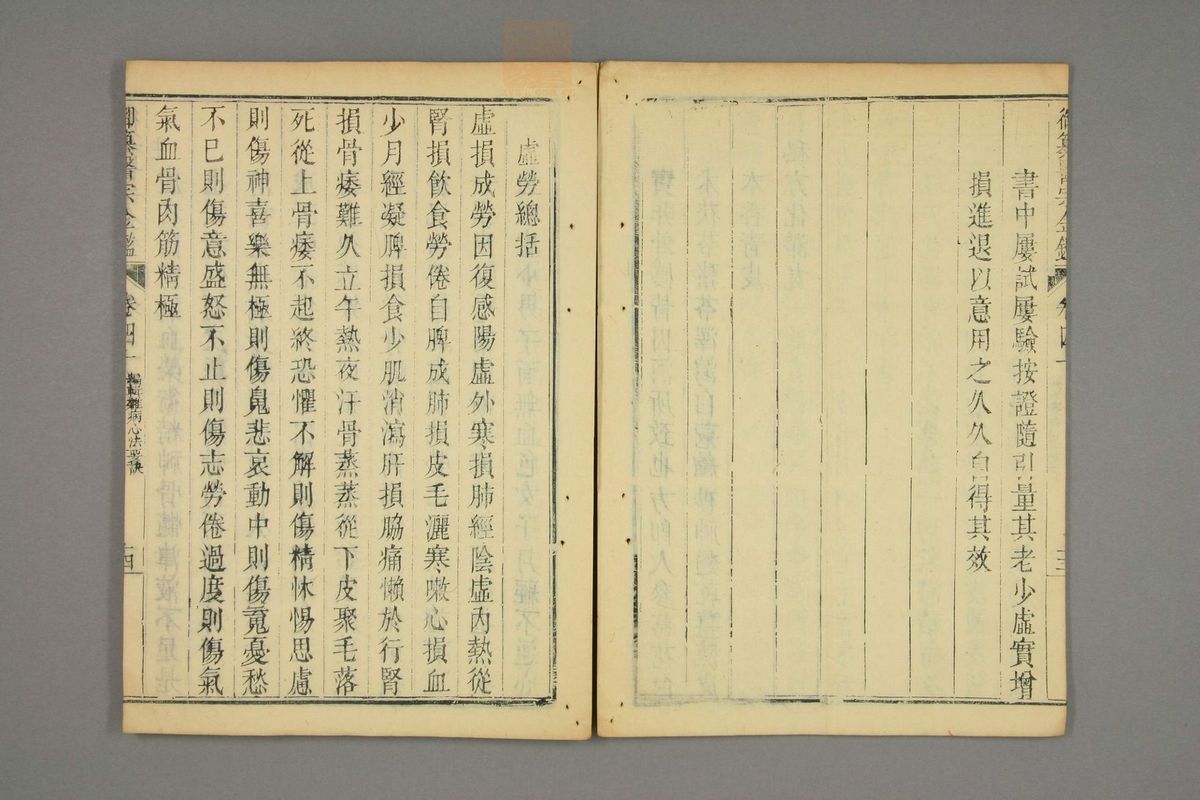 書中屢試屢驗按證隨引量其老少虛實增
損進退以意用之久久自得其效
三
虛勞總括
虛損成勞因復感陽虛外寒損肺經陰虛內熱從
腎損飲食勞倦自脾成肺損皮毛灑寒嗽心損血
少月經凝脾損食少肌消瀉肝損脇痛懶於行腎
損骨痿難久立午熱夜汗骨蒸蒸從下皮聚毛落
死從上骨痿不起終恐懼不解則傷精怵惕思慮
則傷神喜樂無極則傷魄悲哀動中則傷魂憂愁
不已則傷意盛怒不止則傷志勞倦過度則傷氣
氣血骨肉筋精極
卷四一
雜病心法要訣
四